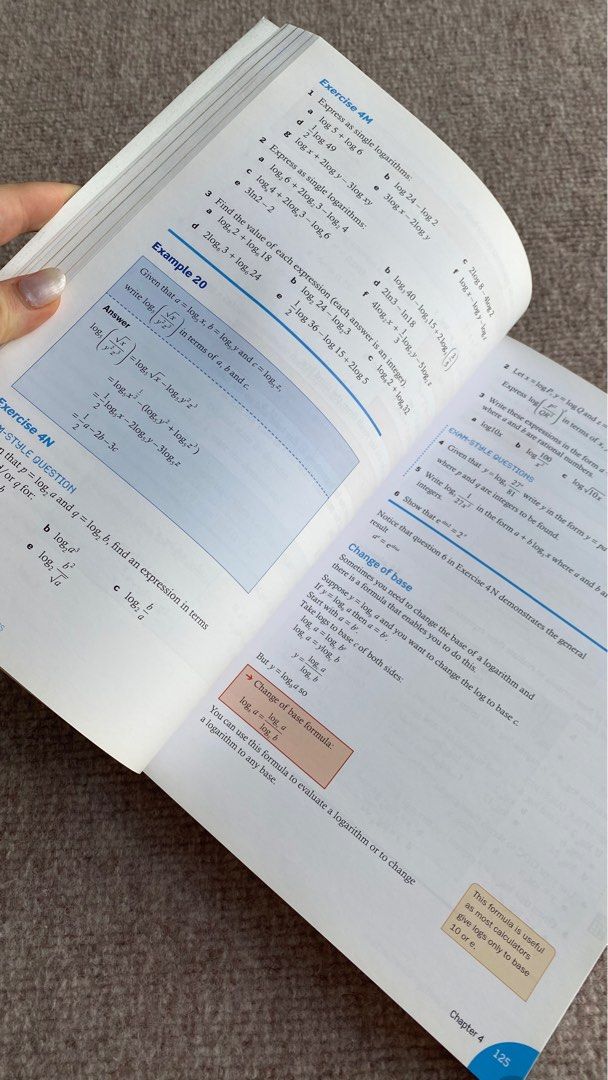 Exercise 4M
1 Express as single logarithms:
a log 5 + log 6
b log 24 – log 2
c 2log 8 – 4log 2
d 1/2 log 49
e 3log x – 2log y
f log x – log y – log z
g log x + 2log y – 3log xy
2 Express as single logarithms:
a 6 + 2log 3 – log 4
b 40 – log 15 + 2log
c log 4 + 2log 3 – log 6
d 2ln3 – ln18
e 3ln2 – 2
3 Find the value of each expression (each answer is an integer)
a log₆ 2 + log₆ 18
b log₂ 24 – log₂ 3
c log₈ 2 + log₈ 32
d 2log₆ 3 + log₆ 24
e 1/2 log 36 – log 15 + 2log 5
Example 20
Given that a = log₅ x, b = log₅ y and c = log₅ z,
write log₅(√x/y²z³) in terms of a, b and c.
Answer
log₅(√x/y²z³) = log₅ √x – log₅ y²z³
= 1/2 log₅ x – 2log₅ y – 3log₅ z
= 1/2 a – 2b – 3c
Exercise 4N
M-STYLE QUESTION
n that p = log₂ a and q = log₂ b, find an expression in terms
d/or q for:
b log₂ a³
c log₂ b/a
e log₂ b²/√a
2 Let x = log P, y = log Q and z
Express log in terms of
3 Write these expressions in the form
where a and b are rational numbers.
a log10x
b log 100/x²
c log√10x
EXAM-STYLE QUESTIONS
4 Given that y = write y in the form y = p
where p and q are integers to be found.
5 Write log₃ 1/27x² in the form a + b log₃ x where a and b a
integers.
6 Show that = 2ˣ
Notice that question 6 in Exercise 4N demonstrates the general
result
Change of base
Sometimes you need to change the base of a logarithm and
there is a formula that enables you to do this.
Suppose y = log_b a and you want to change the log to base c.
If y = log_b a then a = bʸ.
Start with a = bʸ.
Take logs to base c of both sides:
log_c a = log_c bʸ
log_c a = ylog_c b
y = log_c a/log_c b
But y = log_b a so
→ Change of base formula:
log_b a = log_c a/log_c b
You can use this formula to evaluate a logarithm or to change
a logarithm to any base.
This formula is useful
as most calculators
give logs only to base
10 or e.
Chapter 4
125